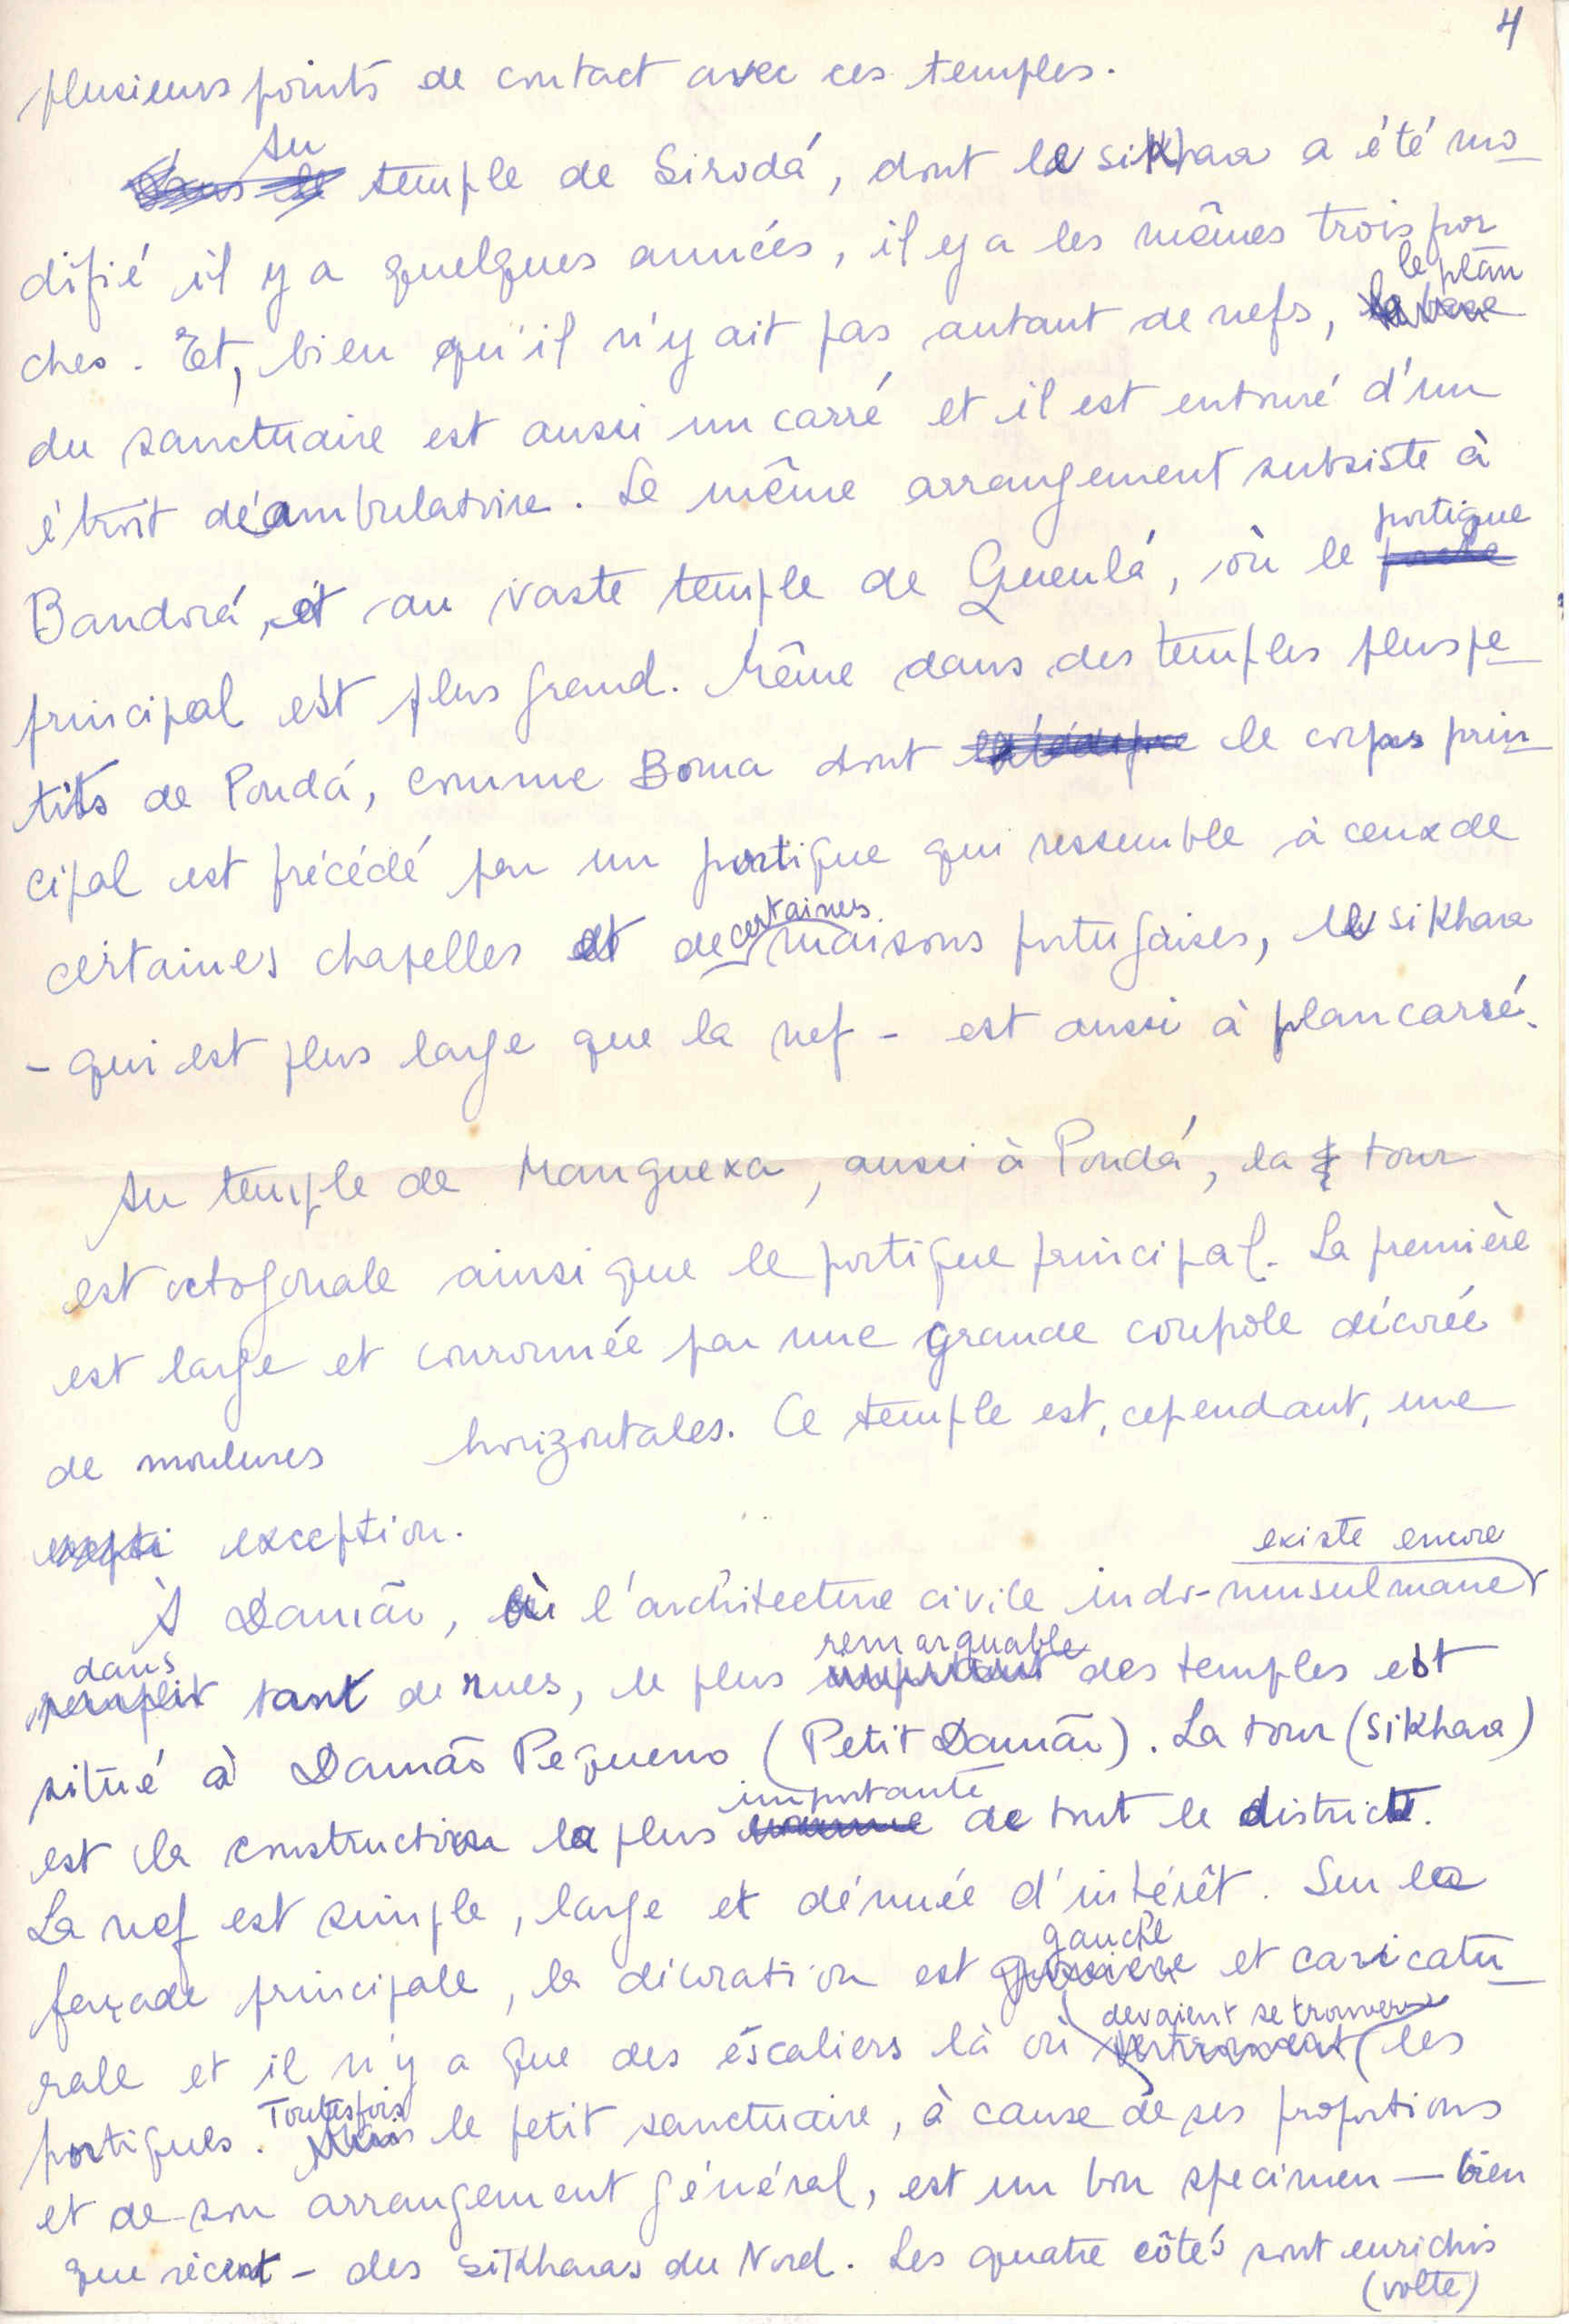 4
plusieurs points de contact avec ces temples.
Au
~~Dans le~~ temple de Sirodá, dont le sikhara a été mo
difié il y a quelques années, il y a les mêmes trois por
le plan
ches. Et, bien qu'il n'y ait pas autant de nefs, ~~la base~~
du sanctuaire est aussi un carré et il est entouré d'un
étroit déambulatoire. Le même arrangement subsiste à
portique
Bandorá, et au vaste temple de Queulá, où le ~~porche~~
principal est plus grand. Même dans des temples plus pe
tits de Pondá, comme Boma dont le corps prin
cipal est précédé par un portique qui ressemble à ceux de
certaines
certaines chapelles et de maisons portugaises, le sikhara
- qui est plus large que la nef - est aussi à plan carré.
Au temple de Manguexa, aussi à Pondá, la tour
est octogonale ainsi que le portique principal. La première
est large et couronnée par une grande coupole décorée
de moulures horizontales. Ce temple est, cependant, une
~~excepti~~ exception.
existe encore
À Damão, où l'architecture civile indo-musulmane
dans
~~remplit~~ tant de rues, le plus ~~important~~ des temples est
remarquable
situé à Damão Pequeno (Petit Damão). La tour (sikhara)
importante
est la construction la plus de tout le district.
La nef est simple, large et dénuée d'intérêt. Sur la
gauche
façade principale, la décoration est ~~grossière~~ et caricatu
devaient se trouver
rale et il n'y a que des éscaliers là où ~~se trouvent~~ les
Toutesfois
portiques. ~~Mais~~ le petit sanctuaire, à cause de ses proportions
et de son arrangement général, est un bon specimen — bien
que récent - des sikharas du Nord. Les quatre côtés sont enrichis
(volte)